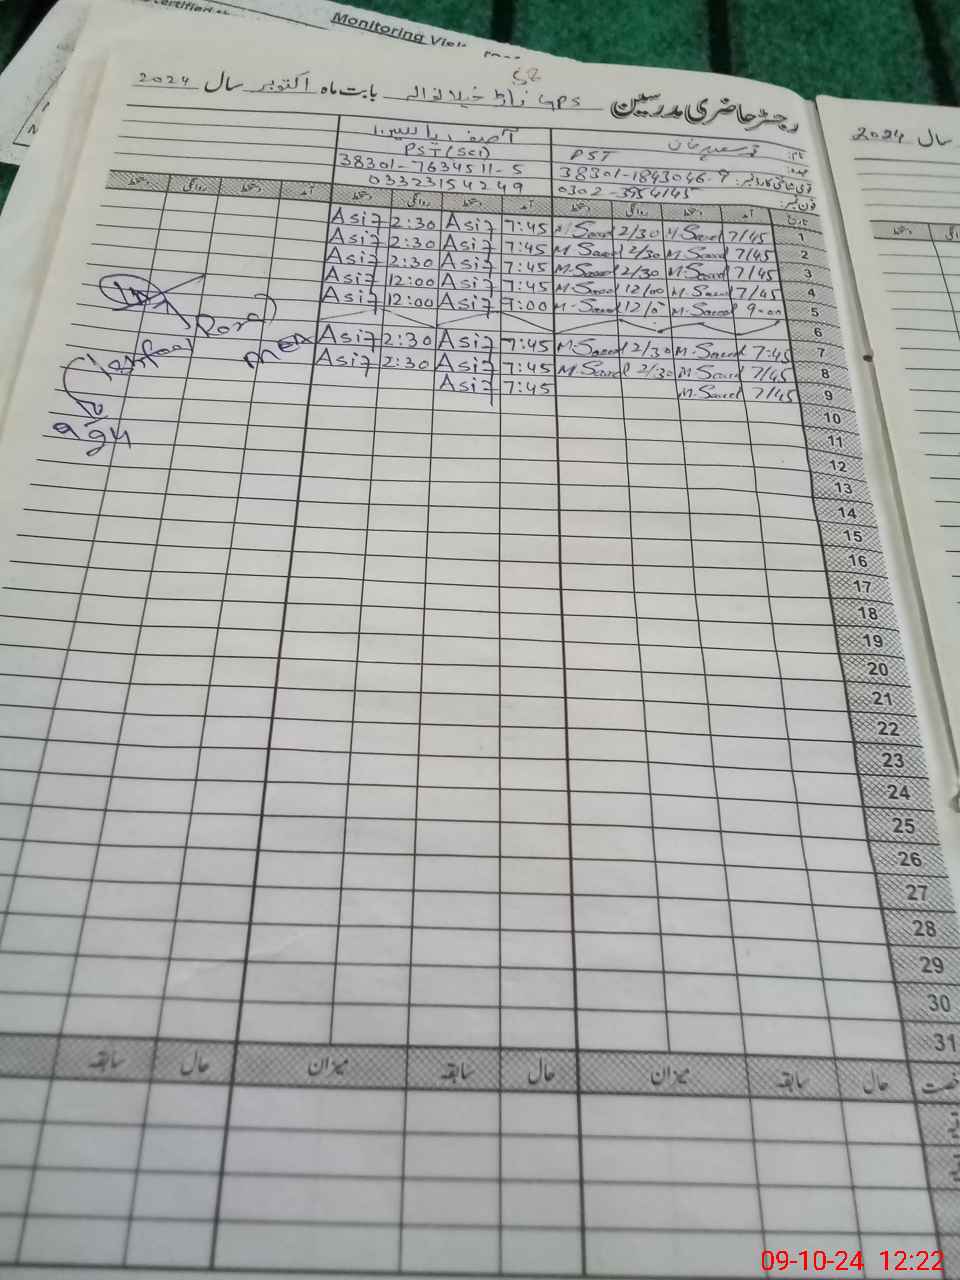 Monitoring Visit
58
رجسٹر حاضری مدرسین GPS بابت ماہ اکتوبر سال 2024
سال 2024
نام: محمد سعید خان آصف یاسین
عہدہ: PST PST (SCI)
قومی شناختی کارڈ نمبر: 38301-1843046-9 38301-7634511-5
فون نمبر: 0302-3954145 03323154249
تاریخ آمد دستخط روانگی دستخط آمد دستخط روانگی دستخط آمد دستخط روانگی دستخط
1 7/45 M.Saeed 2/30 M.Saeed 7:45 Asif 2:30 Asif
2 7/45 M.Saeed 2/30 M.Saeed 7:45 Asif 2:30 Asif
3 7/45 M.Saeed 2/30 M.Saeed 7:45 Asif 2:30 Asif
4 7/45 M.Saeed 12/00 M.Saeed 7:45 Asif 12:00 Asif
5 9-00 M.Saeed M.Saeed 9:00 Asif 12:00 Asif
6
7 7:45 M.Saeed 2/30 M.Saeed 7:45 Asif 2:30 Asif
8 7/45 M.Saeed 2/30 M.Saeed 7:45 Asif 2:30 Asif
9 7/45 M.Saeed 7:45 Asif
10
11
12
13
14
15
16
17
18
19
20
21
22
23
24
25
26
27
28
29
30
31
حال سابقہ میزان حال سابقہ میزان حال سابقہ
09-10-24 12:22